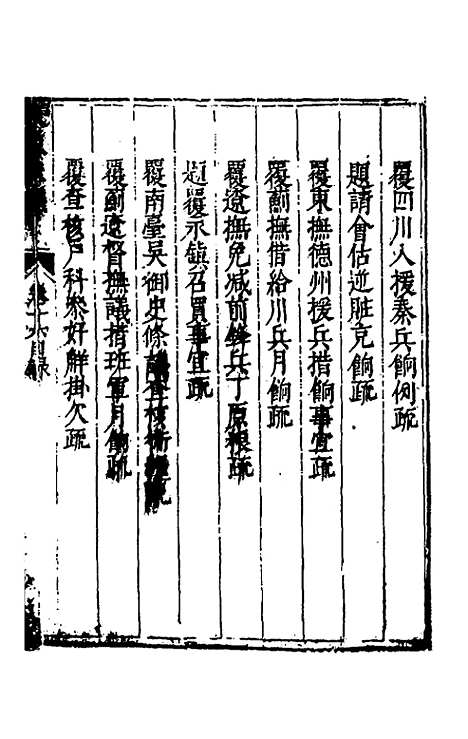 覆四川入援秦兵餉例疏
題請會估逆賍充餉疏
覆東撫德州援兵措餉事宜疏
覆薊撫借給川兵月餉疏
覆遼撫免減前鋒兵丁原粮疏
題覆永鎮召買事宜疏
覆南臺吳御史條議查核衛疏
覆薊遼督撫議措班軍月餉疏
覆查核戶科叅奸觧掛欠疏
卷十六目錄